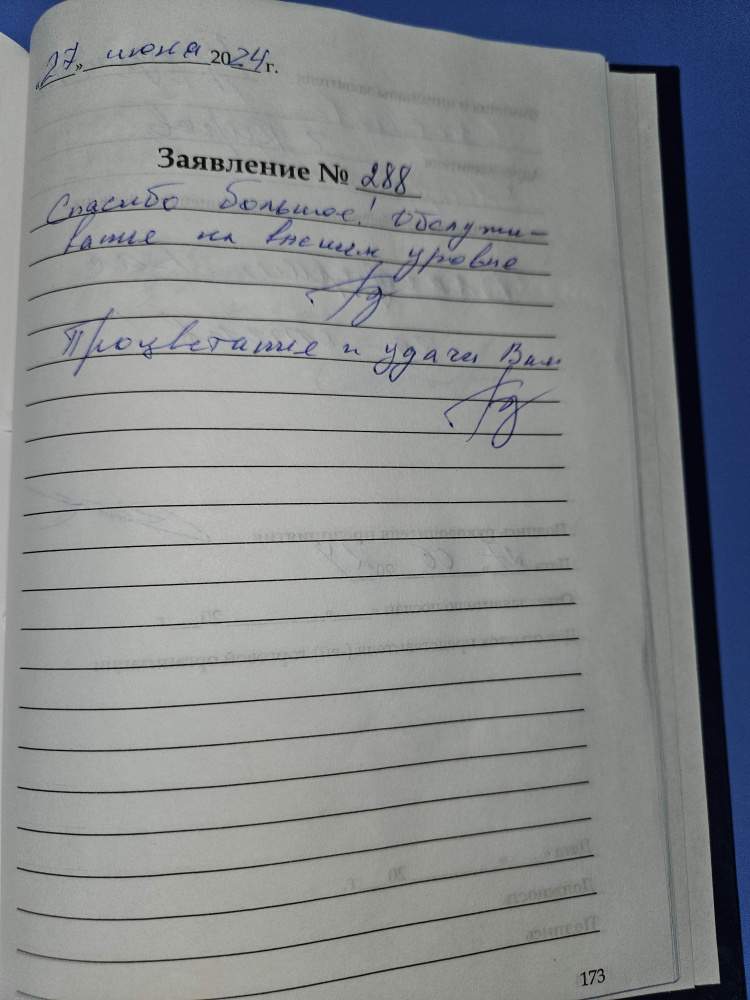 "27" июня 2024 г.
Заявление № 288
Спасибо большое! Обслужи-
вание на высшем уровне
Процветание и удачи Вам
173